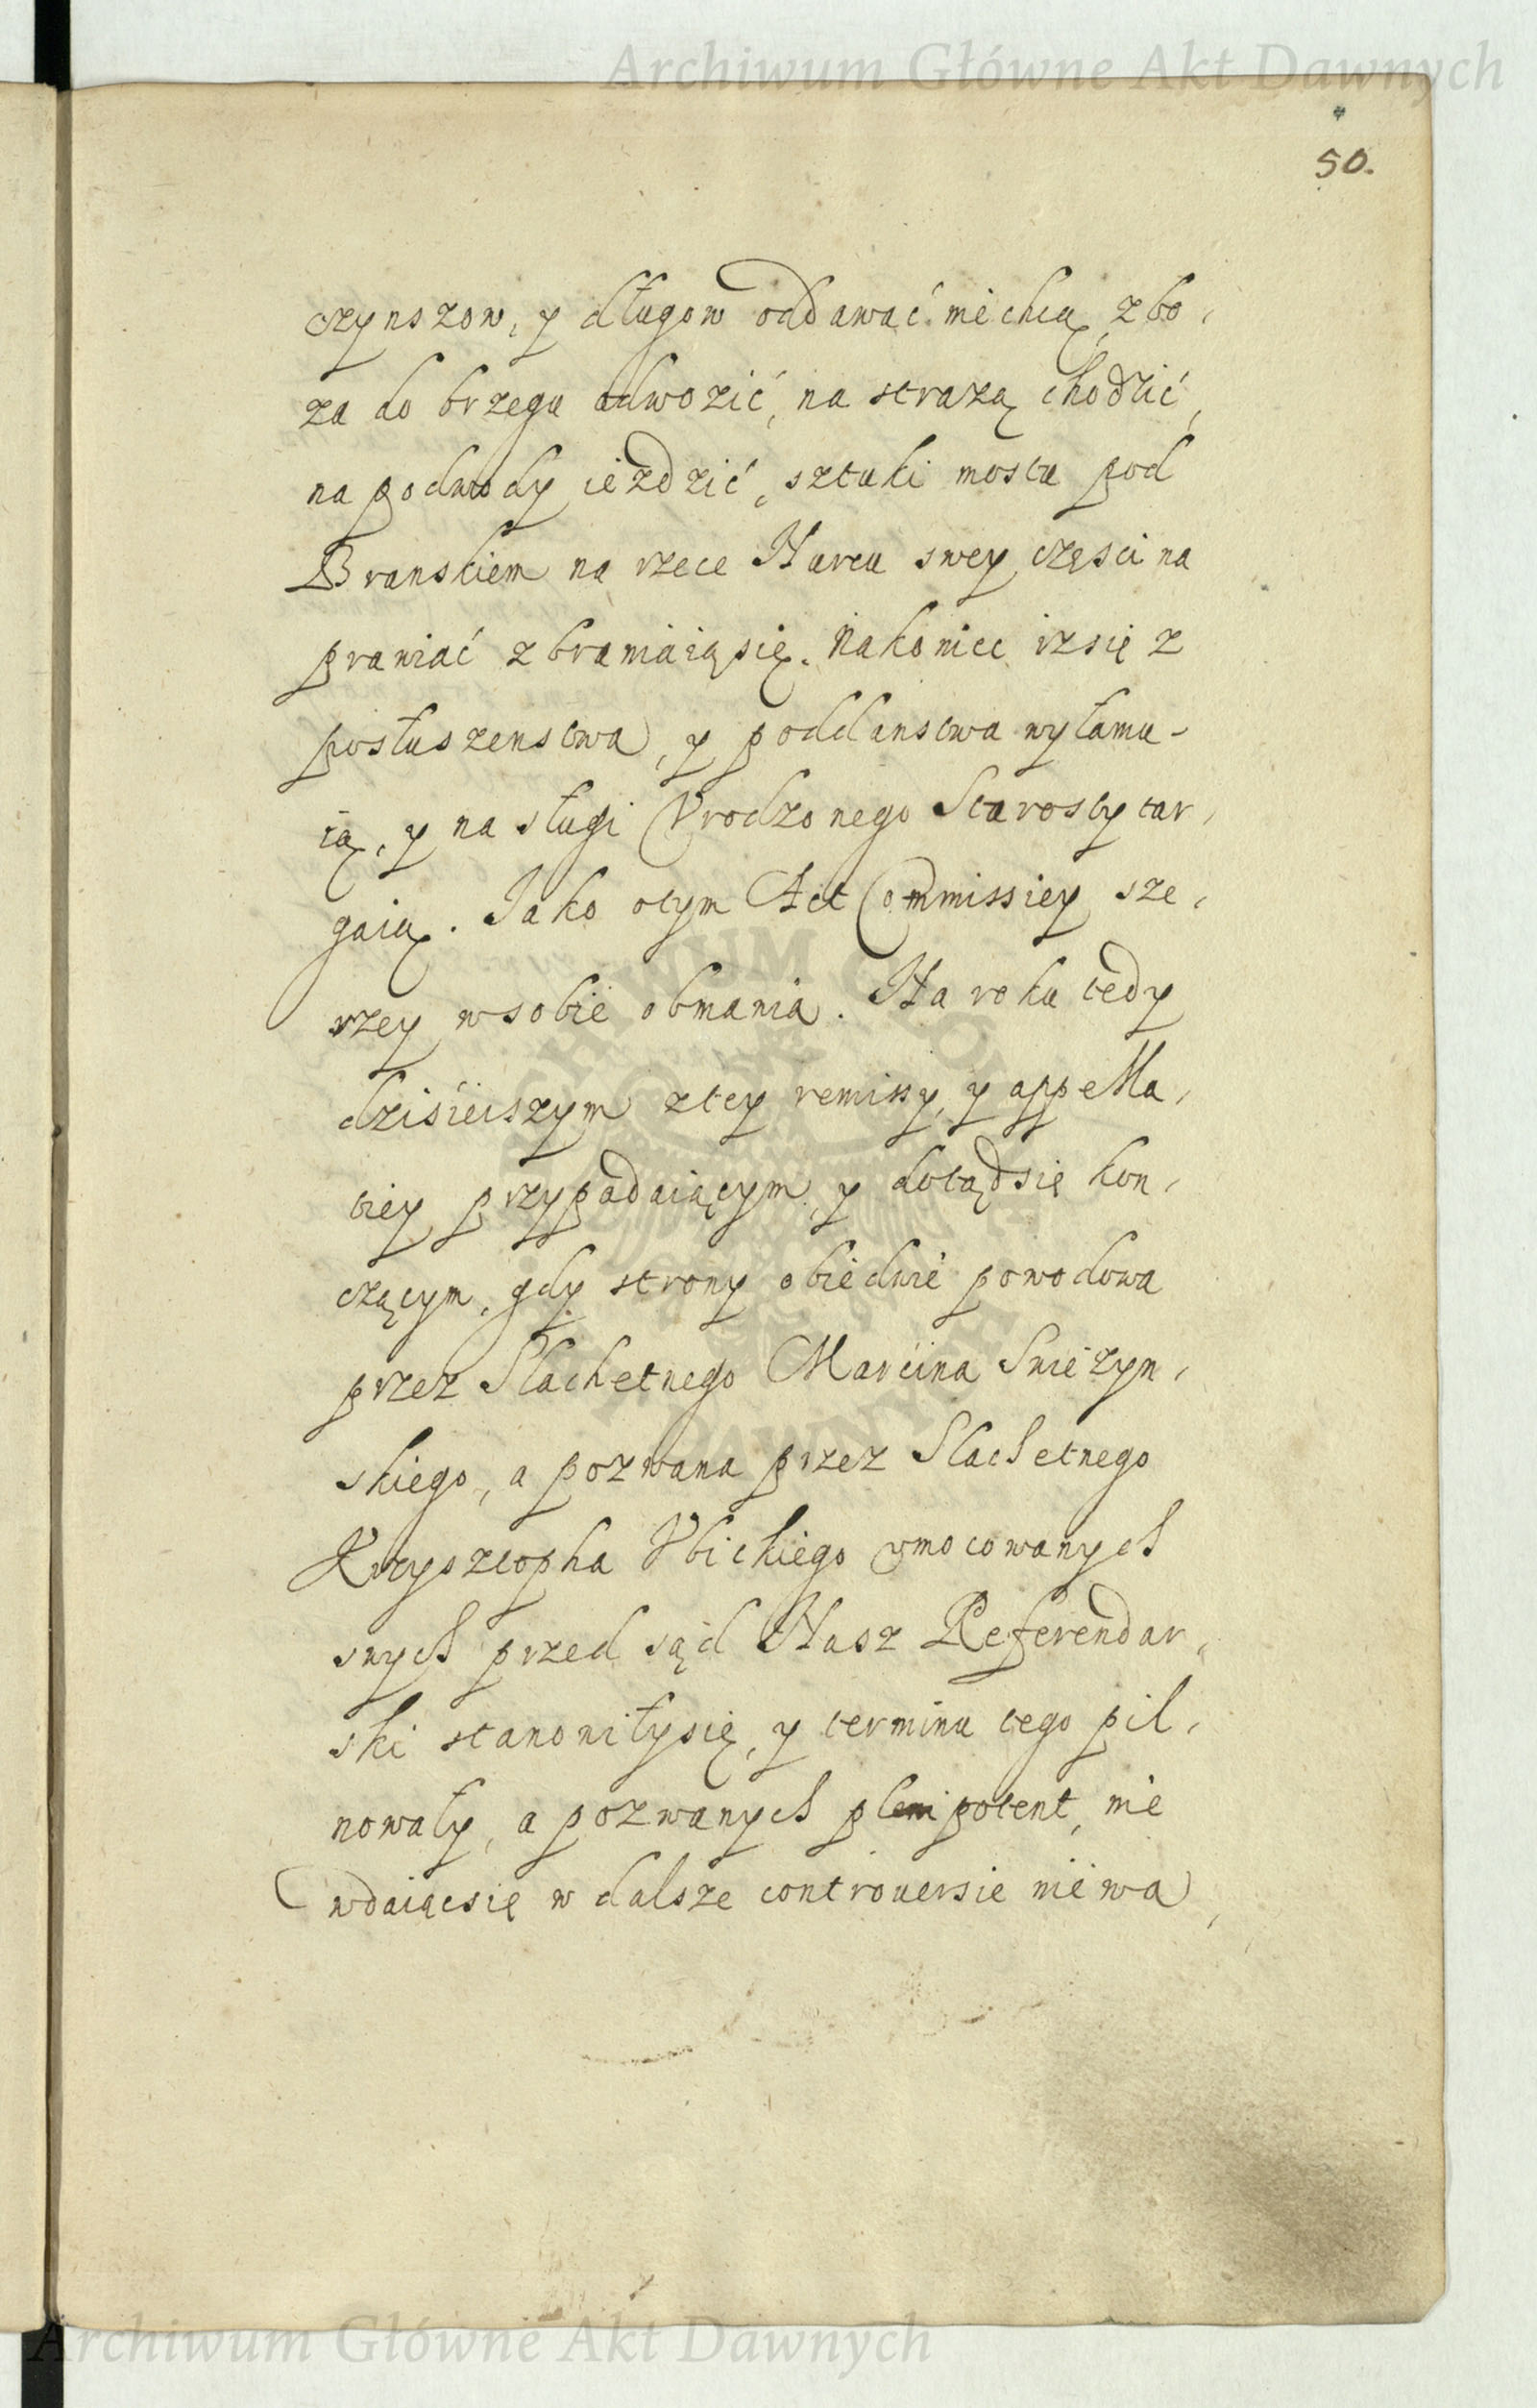 Archiwum Główne Akt Dawnych
50.
czynszow, y długow oddawać nie chcą, zbo,
za do brzegu odwozić, na strażą chodzić,
na podwody ieździć, sztuki mostu pod
Branskiem na rzece Nurcu swey części na
prawiać zbraniaią się. Nakoniec iż się z
posłuszenstwa, y poddanstwa wyłamu-
ią, y na sługi Vrodzonego Starosty tar,
gaią. Jako otym Act Commissiey sze,
rzey w sobie obmawia. Na roku tedy
dzisieiszym ztey remissy, y appella,
tiey przypadaiącym, y dotąd się kon,
czącym, gdy strony obiedwie powodowa
przez Slachetnego Marcina Snieżyn,
skiego, a pozwana przez Slachetnego
Krzysztopha Vbickiego vmocowanych
swych przed sąd Nasz Referendar,
ski stanowiły się, y terminu tego pil,
nowały, a pozwanych plenipotent, nie
wdaiąc się w dalsze controuersie nie wa,
ARCHIWUM GŁÓWNE AKT DAWNYCH
Archiwum Główne Akt Dawnych